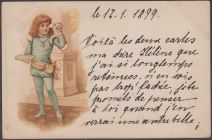 le 12.1.1899.
Voilà les deux cartes
ma chère Hélène que
j'ai si longtemps
retenues, n'en sois
pas trop fâchée, je te
promets de penser
à toi quand j'en
verrai une autre belle,